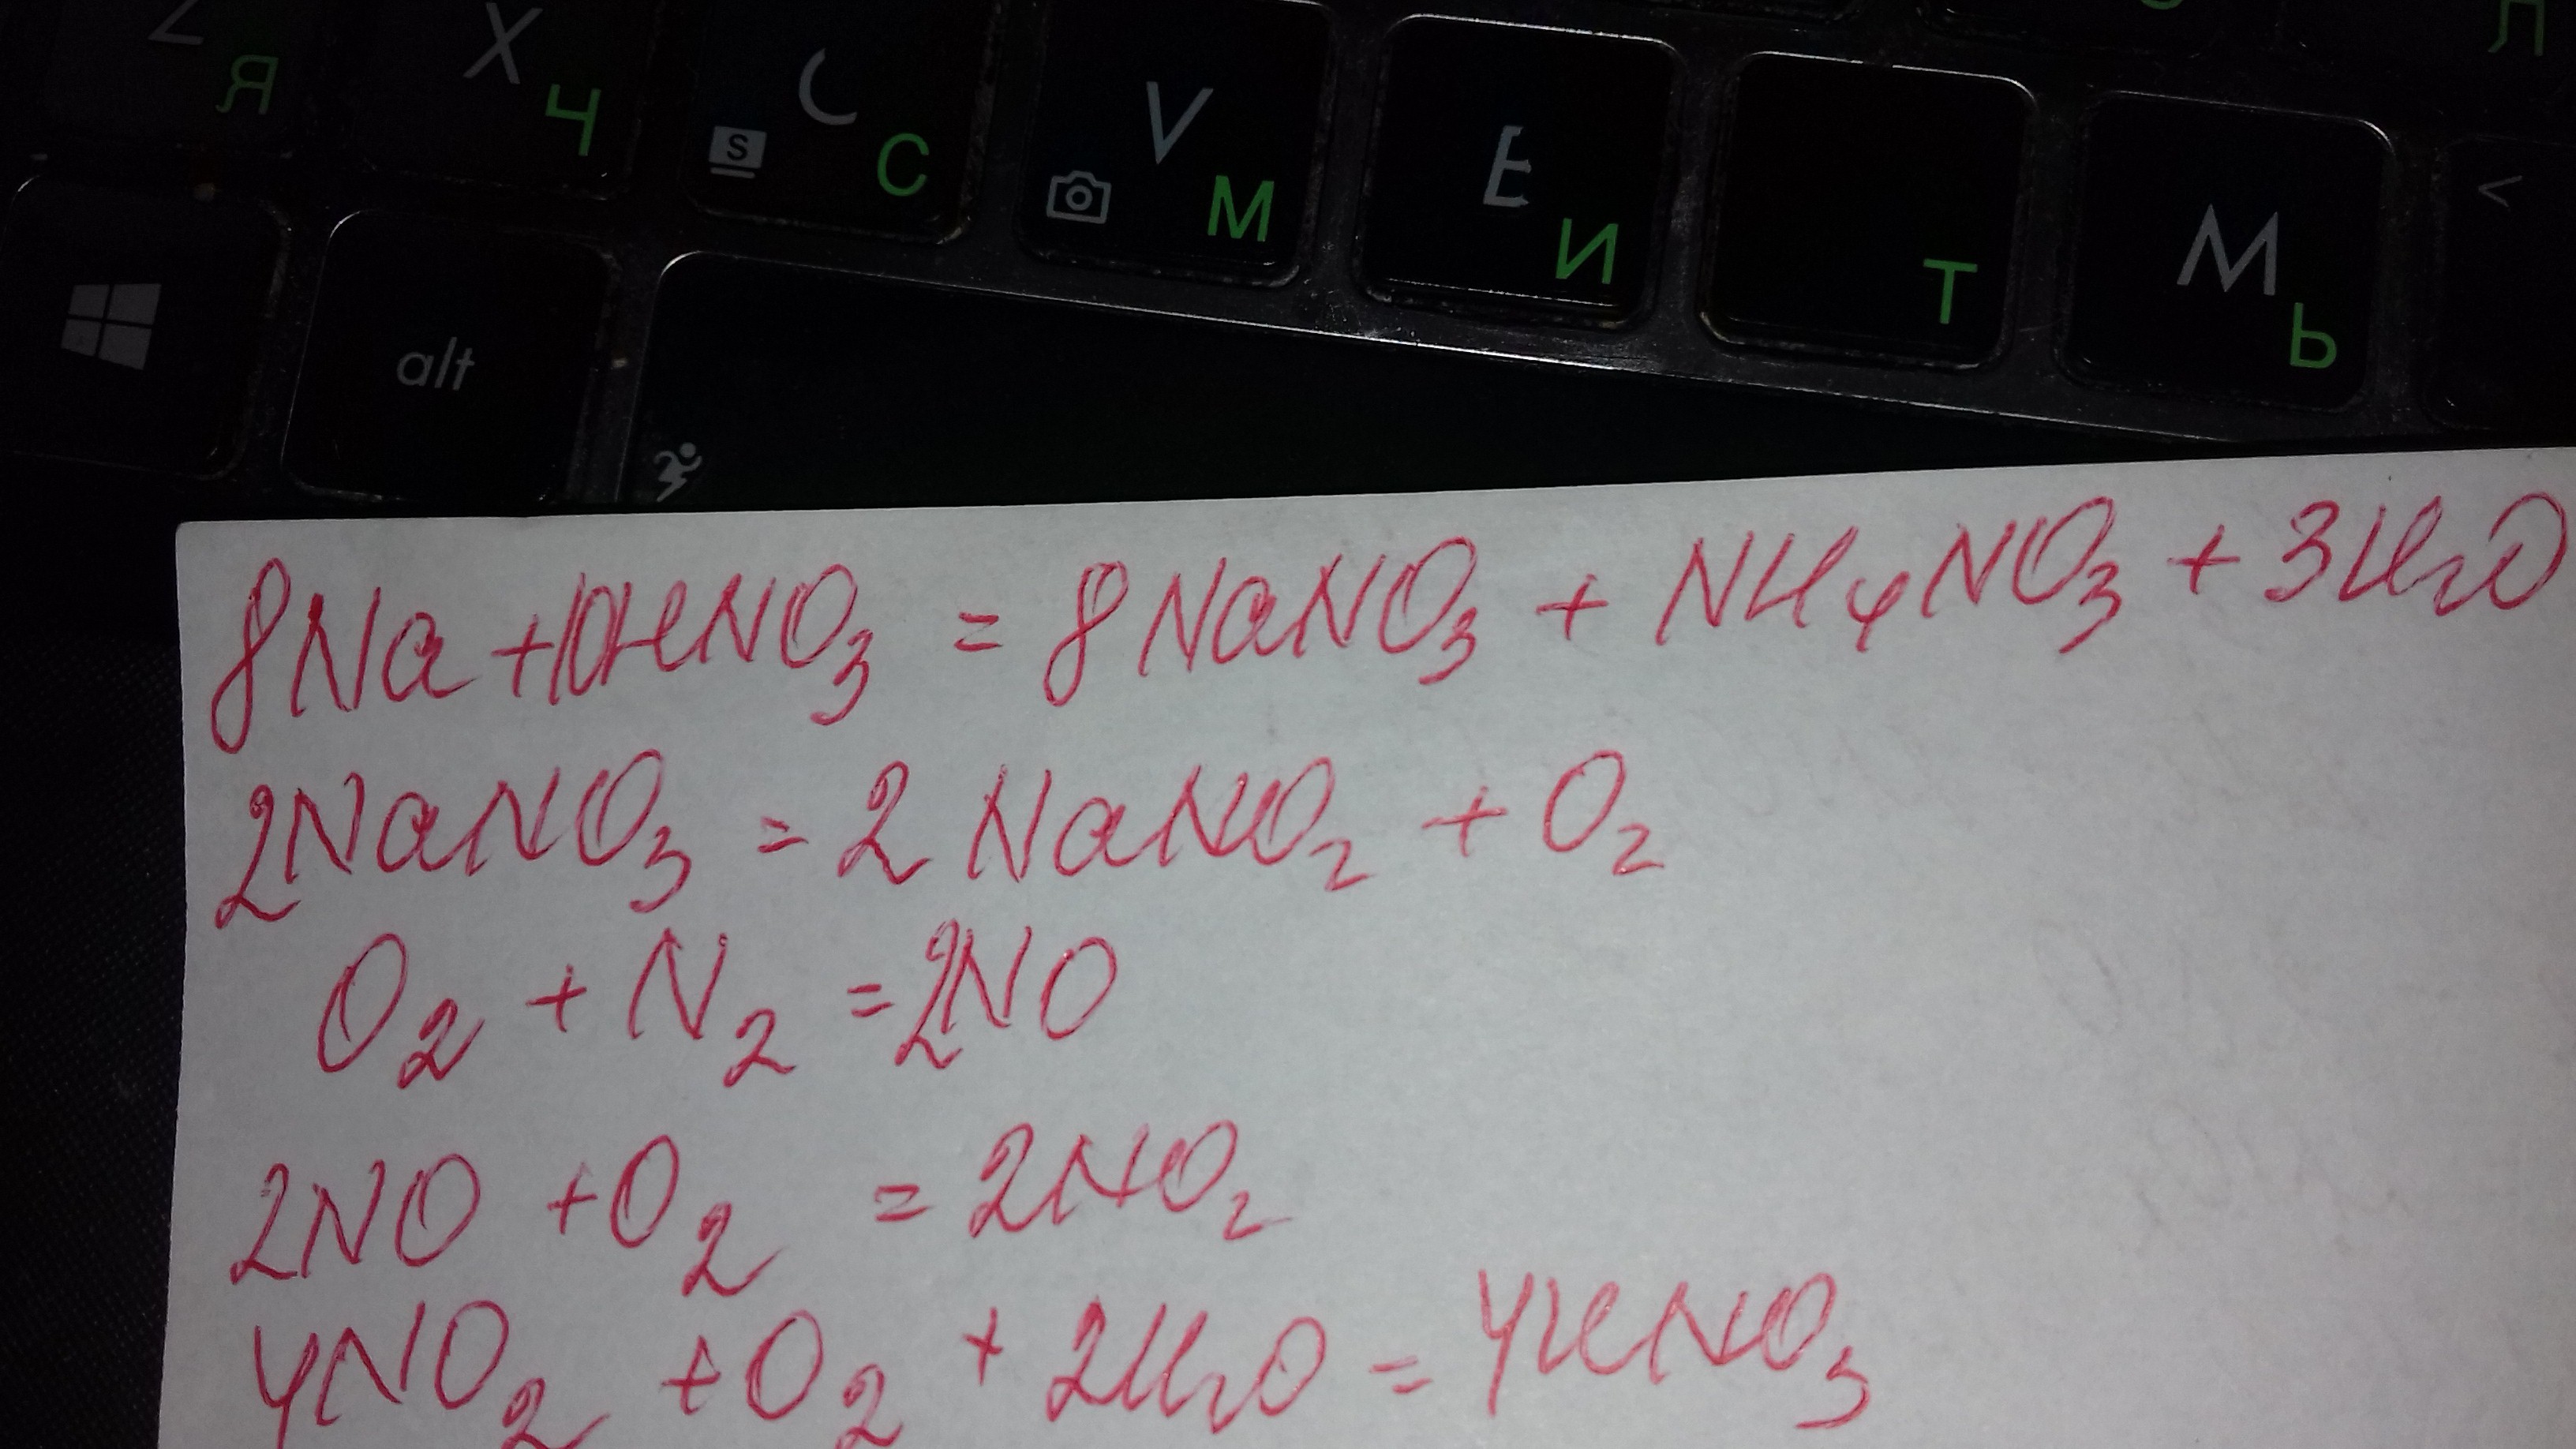 Z Я X Ч C S С V М B И Т M Ь < Л
alt
8Na+10HNO₃ = 8NaNO₃ + NH₄NO₃ + 3H₂O
2NaNO₃ = 2NaNO₂ + O₂
O₂ + N₂ = 2NO
2NO + O₂ = 2NO₂
4NO₂ + O₂ + 2H₂O = 4HNO₃